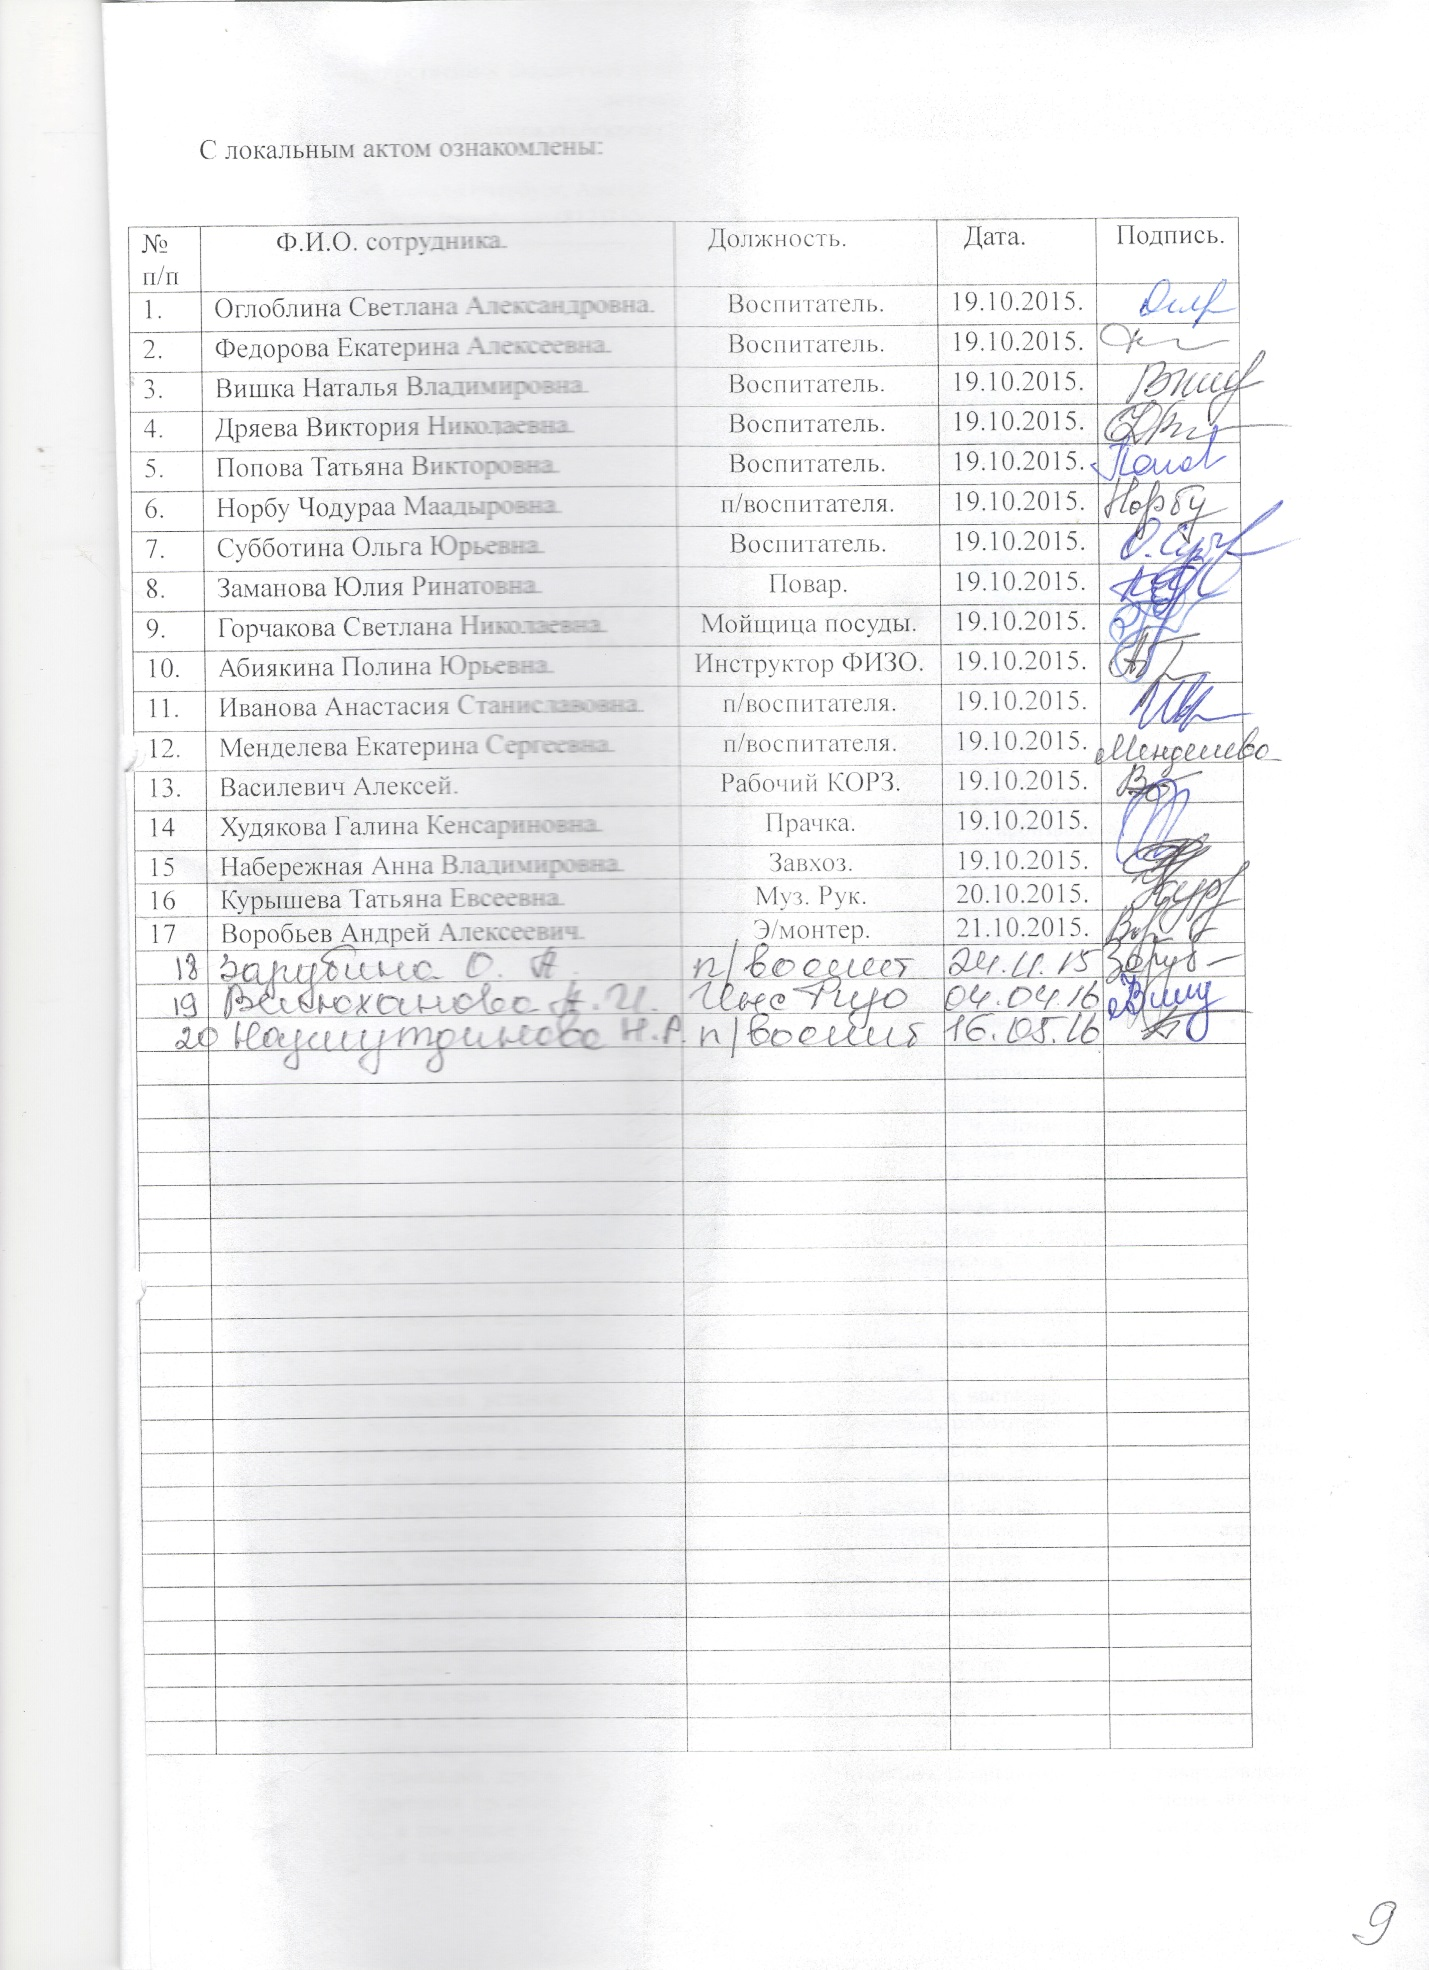 С локальным актом ознакомлены:
№ п/п Ф.И.О. сотрудника. Должность. Дата. Подпись.
1. Оглоблина Светлана Александровна. Воспитатель. 19.10.2015.
2. Федорова Екатерина Алексеевна. Воспитатель. 19.10.2015.
3. Вишка Наталья Владимировна. Воспитатель. 19.10.2015.
4. Дряева Виктория Николаевна. Воспитатель. 19.10.2015.
5. Попова Татьяна Викторовна. Воспитатель. 19.10.2015.
6. Норбу Чодураа Маадыровна. п/воспитателя. 19.10.2015. Норбу
7. Субботина Ольга Юрьевна. Воспитатель. 19.10.2015.
8. Заманова Юлия Ринатовна. Повар. 19.10.2015.
9. Горчакова Светлана Николаевна. Мойщица посуды. 19.10.2015.
10. Абиякина Полина Юрьевна. Инструктор ФИЗО. 19.10.2015.
11. Иванова Анастасия Станиславовна. п/воспитателя. 19.10.2015.
12. Менделева Екатерина Сергеевна. п/воспитателя. 19.10.2015. Менделева
13. Василевич Алексей. Рабочий КОРЗ. 19.10.2015.
14 Худякова Галина Кенсариновна. Прачка. 19.10.2015.
15 Набережная Анна Владимировна. Завхоз. 19.10.2015.
16 Курышева Татьяна Евсеевна. Муз. Рук. 20.10.2015.
17 Воробьев Андрей Алексеевич. Э/монтер. 21.10.2015.
18 Зарубина О. А. п/воспит 24.11.15 Заруб
19 А.И. 04.04.16
20 Н.Р. п/воспит 16.05.16
9